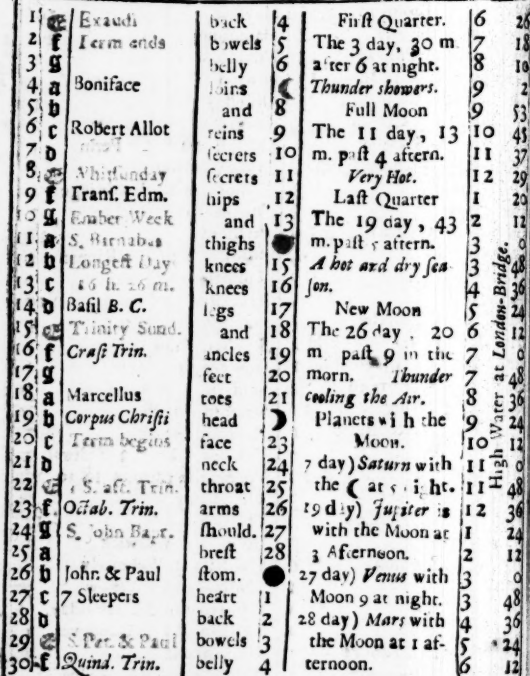 1 e Exaudi back 4 Firſt Quarter. 6 26
2 f Term ends bowels 5 The 3 day, 30 m. 7 18
3 g belly 6 after 6 at night. 8 10
4 a Boniface loins Thunder ſhowers. 9 2
5 b and 8 Full Moon 9 53
6 c Robert Allot reins 9 The 11 day, 13 10 45
7 d ſecrets 10 m. paſt 4 aftern. 11 37
8 e Whitſunday ſecrets 11 Very Hot. 12 29
9 f Tranſ. Edm. hips 12 Laſt Quarter 1 20
10 g Ember Week and 13 The 19 day, 43 2 12
11 a S. Barnabas thighs m. paſt 5 aftern. 3
12 b Longeſt Day knees 15 A hot and dry ſea- 3 48
13 c 16 h. 26 m. knees 16 ſon. 4 36
14 d Baſil B. C. legs 17 New Moon 5 24
15 e Trinity Sund. and 18 The 26 day, 20 6 12
16 f Craſt Trin. ancles 19 m paſt 9 in the 7 0
17 g feet 20 morn. Thunder 7 48
18 a Marcellus toes 21 cooling the Air. 8 36
19 b Corpus Chriſti head Planets with the 9 24
20 c Term begins face 23 Moon. 10 12
21 d neck 24 7 day) Saturn with 11
22 e S. aft. Trin. throat 25 the ☾ at night. 11 48
23 f Octab. Trin. arms 26 19 day) Jupiter is 12 36
24 g S. John Bapt. ſhould. 27 with the Moon at 1 24
25 a breſt 28 3 Afternoon. 2 12
26 b John & Paul ſtom. 27 day) Venus with 3 0
27 c 7 Sleepers heart 1 Moon 9 at night. 3 48
28 d back 2 28 day) Mars with 4 36
29 e S. Pet. & Paul bowels 3 the Moon at 1 af- 5 24
30 f Quind. Trin. belly 4 ternoon. 6 12
High Water at London-Bridge.